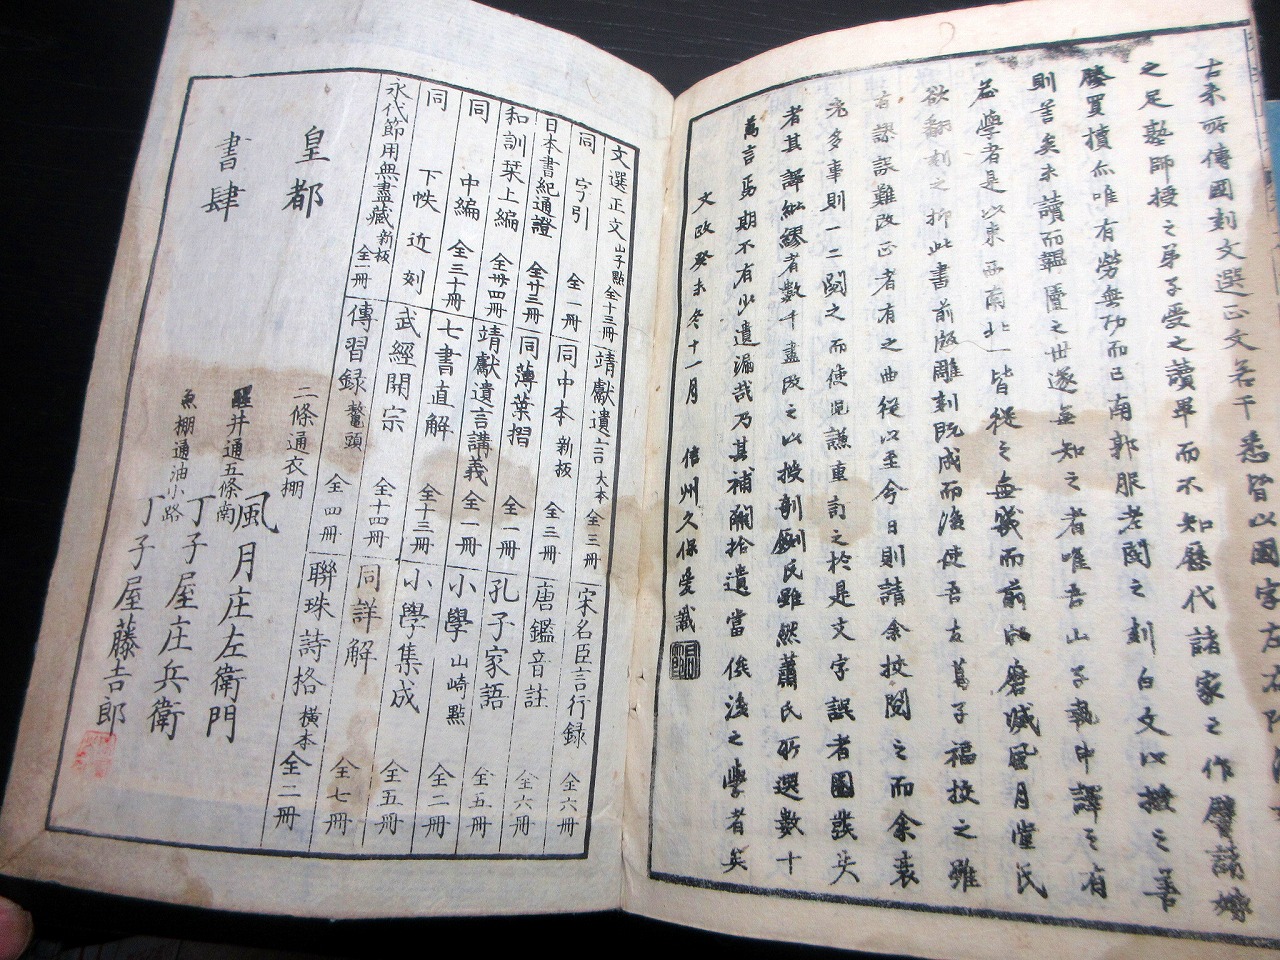 古來所傳國刻文選正文若干悉皆以國字左右
之足塾師授之弟子受之讀畢而不知歷代諸家之作譬諸
賸買櫝亦唯有勞無功而已南郭服老閔之刻白文以授之善
則善矣未讀而韞匵之世遂無知之者唯吾山子執中譯之有
益學者是以東西南北一皆從之無貳而前版磨滅風月堂氏
欲翻刻之抑此書前版雕刻既成而後使吾友葛子福挍之雖
有謬誤難改正者有之曲從以至今日則請余挍閱之而余衰
老多事則一二閱之而使兒謙重訂之於是文字誤者圖
者其譯紕繆者數千盡改之以授剞劂氏雖然蕭氏所選數十
萬言焉期不有少遺漏哉乃其補闕拾遺當俟後之學者矣
文政癸未冬十一月　信州久保愛識
文選正文 山子點 全十三冊
靖獻遺言 大本 全三冊
宋名臣言行録 全六冊
同 字引 全一冊
同中本 新板 全三冊
唐鑑音註 全六冊
日本書紀通證 全廿三冊
同薄葉摺 全一冊
孔子家語 全五冊
和訓栞上編 全卅四冊
靖獻遺言講義 全一冊
小學 山崎點 全二冊
同 中編 全三十冊
七書直解 全十三冊
小學集成 全五冊
同 下帙 近刻
武經開宗 全十四冊
同詳解 全七冊
永代節用無盡藏 新板 全一冊
傳習録 鼇頭 全四冊
聯珠詩格 橫本 全二冊
皇都
書肆
二條通衣棚
風月庄左衛門
醒井通五條南
丁子屋庄兵衛
魚棚通油小路
丁子屋藤吉郎